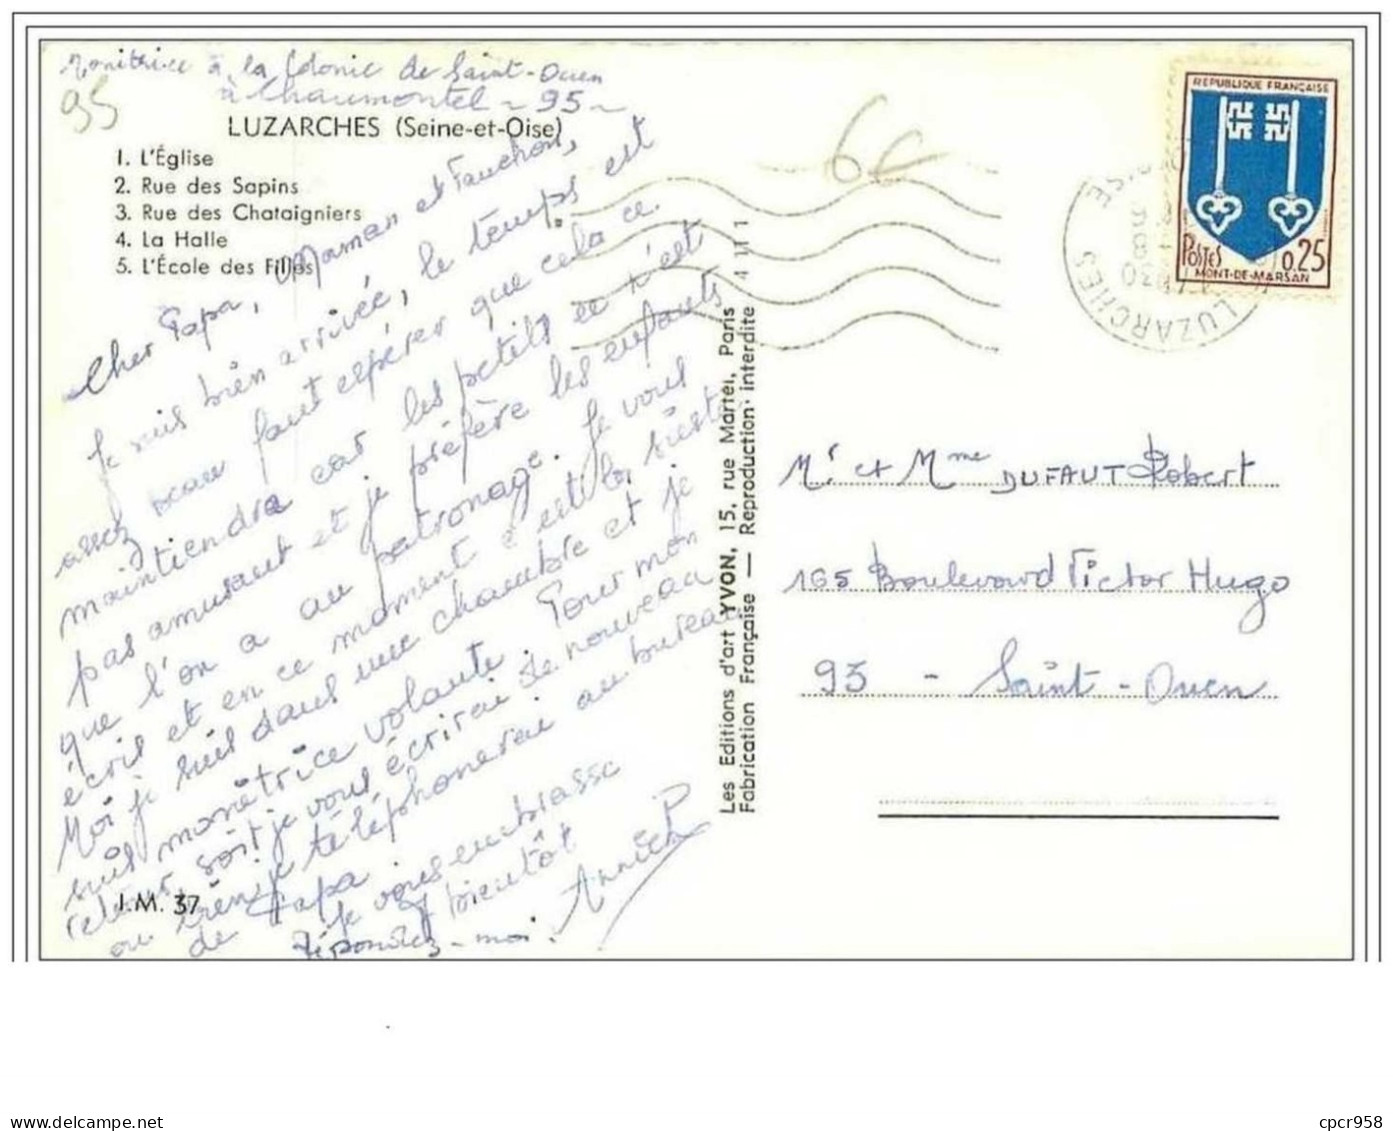 Monitrice à la Colonie de Saint-Ouen
à Chaumontel - 95 -
95
LUZARCHES (Seine-et-Oise)
1. L'Église
2. Rue des Sapins
3. Rue des Chataigniers
4. La Halle
5. L'École des Filles
Cher Papa, Maman et Fanchon,
Je suis bien arrivée, le temps est
assez beau faut espérer que cela ce
maintiendra car les petits ce n'est
pas amusant et je préfère les enfants
que l'on a au patronage. Je vous
écris et en ce moment c'est la sieste
Moi je suis dans une chambre et je
suis monitrice volante. Pour mon
retour, soit je vous écrirai de nouveau
ou bien je téléphonerai au bureau
de Papa.
Je vous embrasse
à bientôt
Répondez-moi.
Annick
J.M. 37
Les Editions d'art YVON, 15, rue Martel, Paris
Fabrication Française — Reproduction interdite
6€
4 111
LUZARCHES
OISE
RÉPUBLIQUE FRANÇAISE
POSTES
0.25
MONT-DE-MARSAN
Mr et Mme DUFAUT Robert
165 Boulevard Victor Hugo
93 - Saint-Ouen
delcampe.net
cpcr958